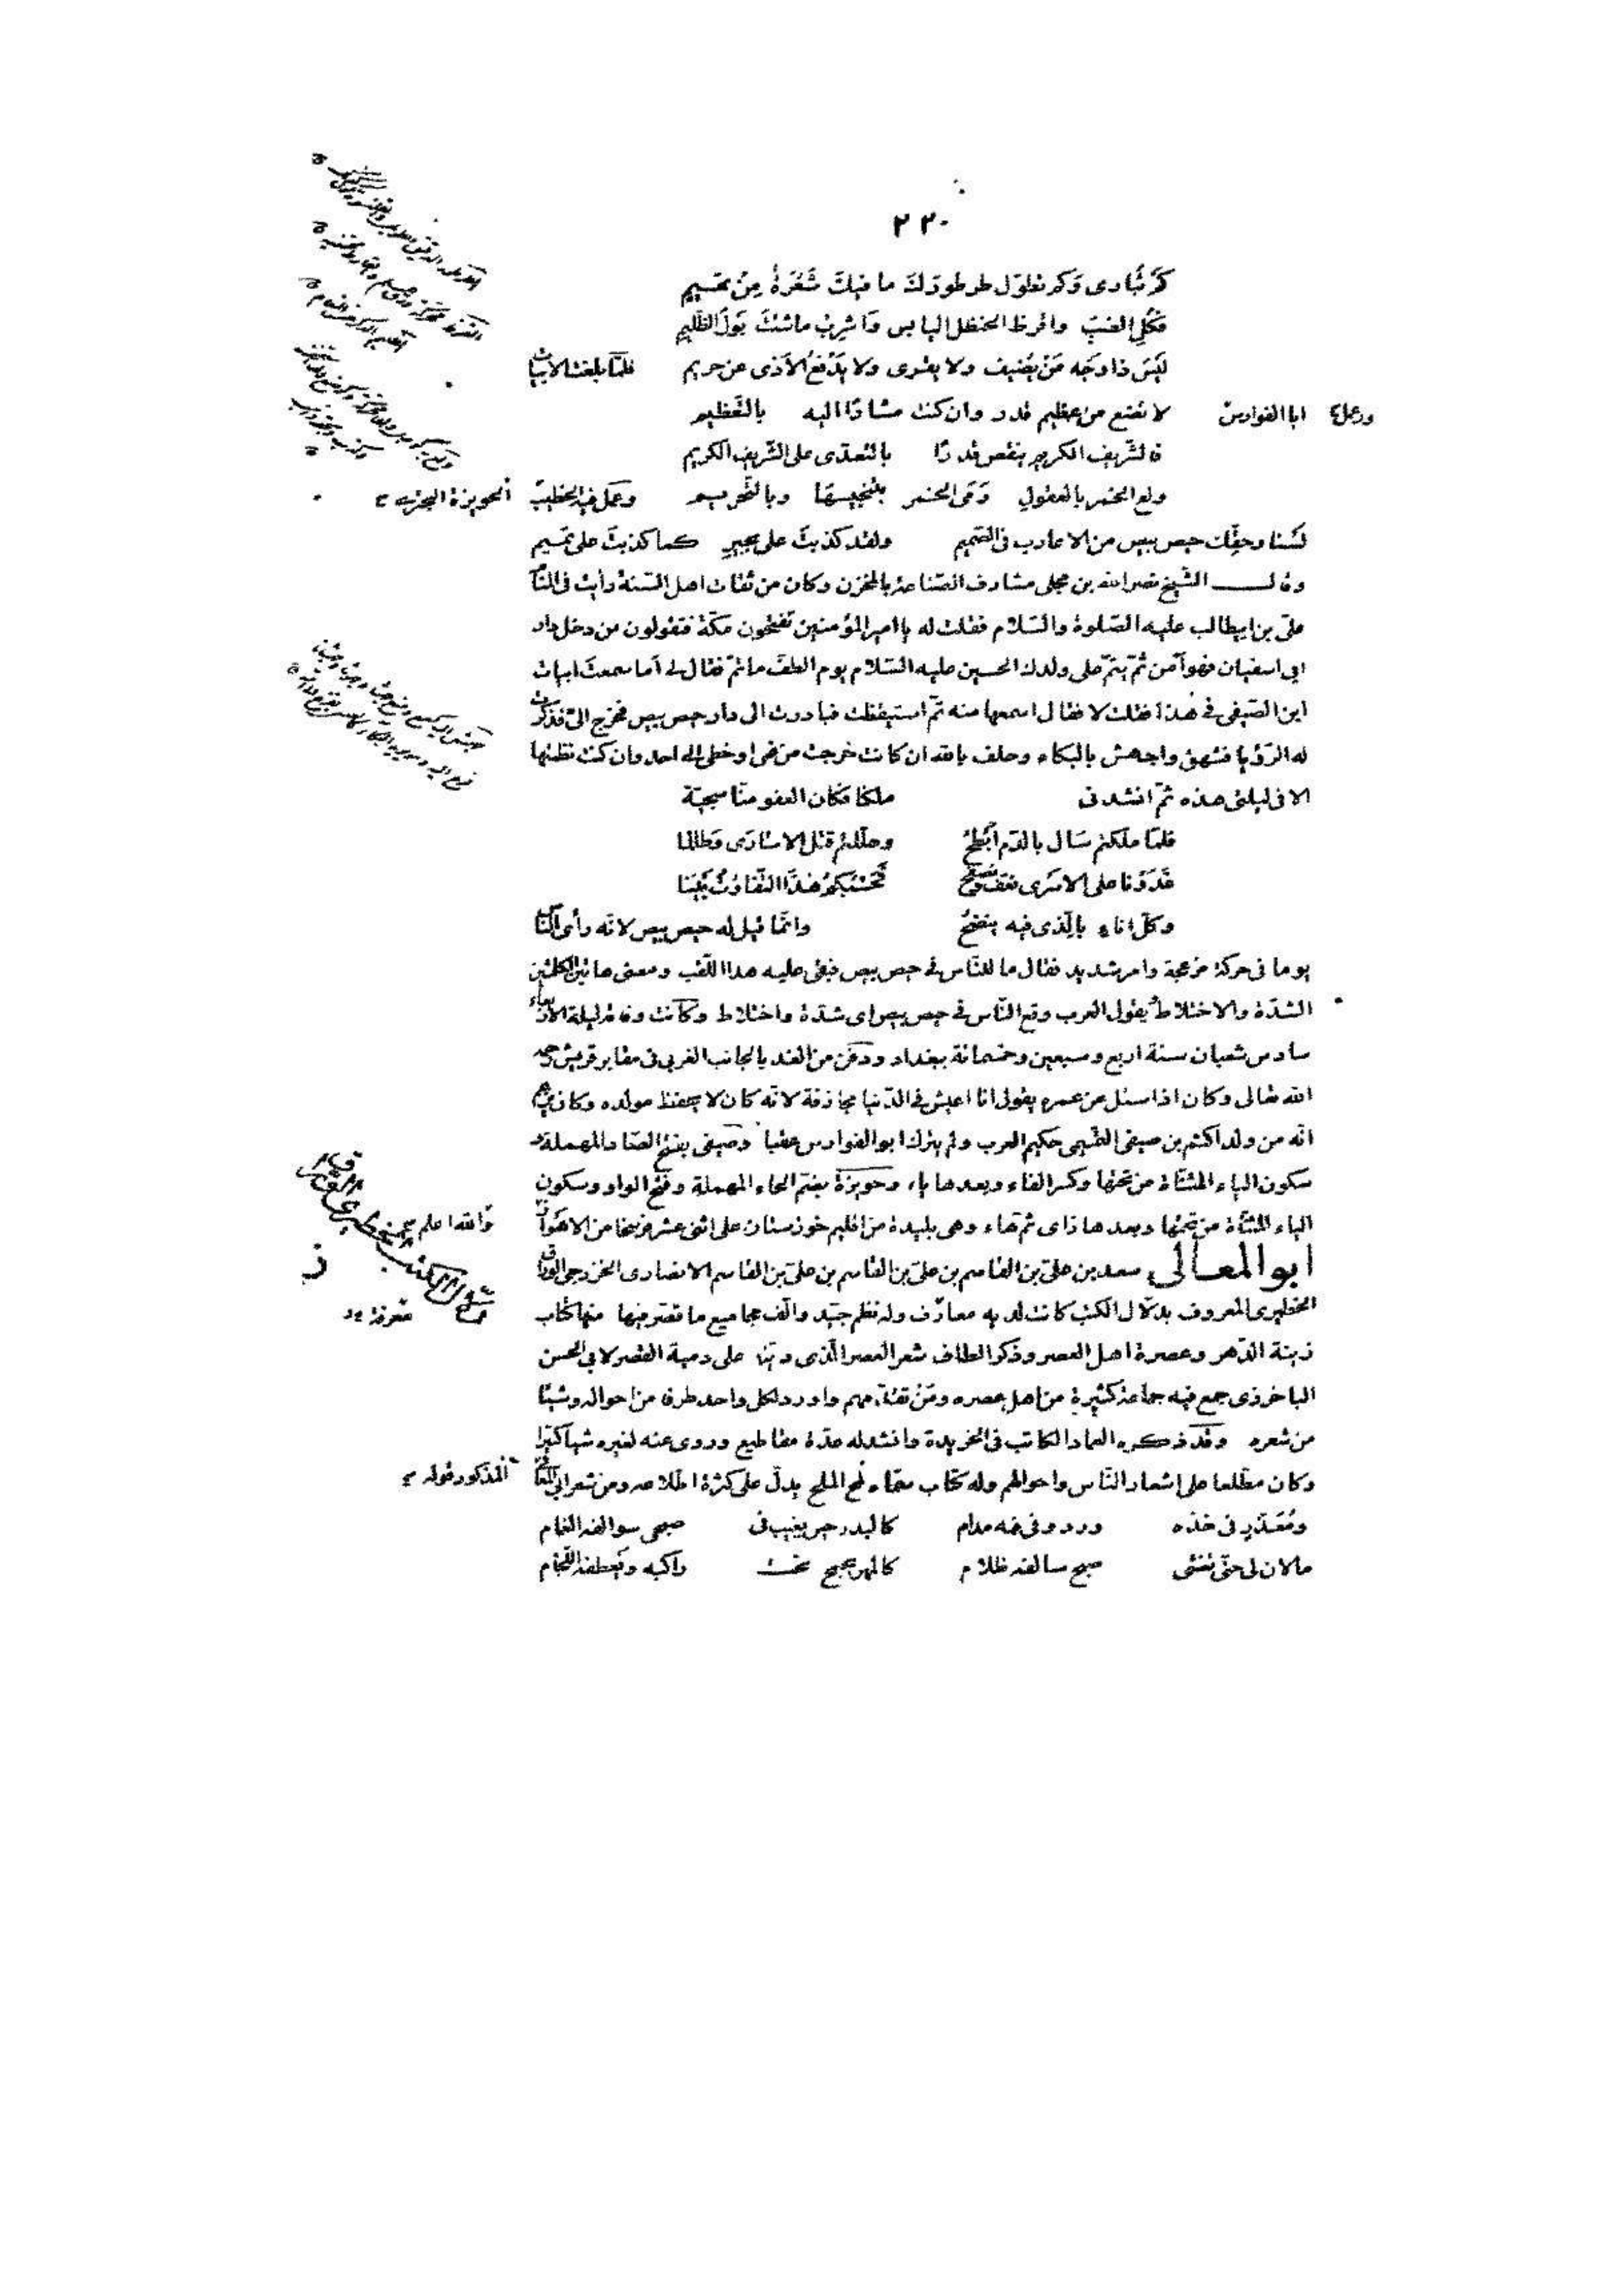 ٢٢٠
كم تبادى وكم تطول طرطورك ما فيك شعرة من تميم
فكل الضب واقرط الحنظل اليابس واشرب ما شئت بول الظليم
ليس ذا وجه من يضيف ولا يقرى ولا يدفع الاذى عن حريم فلما بلغت الابيات
ابا الفوارس وعمل لا تضع من عظيم قدر وان كنت مشارا اليه بالتعظيم
فالشريف الكريم ينقص قدرا بالتعدى على الشريف الكريم
ولع الخمر بالعقول رمى الخمر بتنجيسها وبالتحريم وعمل فيه الخطيب الحويزة البحترى
لسنا وحقك حيص بيص من الاعارب فى الصميم ولقد كذبت على بجير كما كذبت على تميم
وقال الشيخ نصر الله بن مجلى مشارف الصناعة بالمخزن وكان من ثقات اهل السنة رأيت فى المنام
على بن ابيطالب عليه الصلوة والسلام فقلت له يا امير المؤمنين تفتحون مكة فتقولون من دخل دار
ابى سفيان فهو آمن ثم يتم على ولدك الحسين عليه السلام يوم الطف ما تم فقال لى أما سمعت ابيات
ابن الصيفى فى هذا فقلت لا فقال اسمعها منه ثم استيقظت فبادرت الى دار حيص بيص فخرج الى فذكرت
له الرؤيا فشهق واجهش بالبكاء وحلف بالله ان كانت خرجت من فمى او خطى الى احد وان كنت نظمتها
الا فى ليلتى هذه ثم انشدنى ملكنا فكان العفو منا سجية
فلما ملكتم سال بالدم ابطح وحللتم قتل الاسارى وطالما
غدونا على الاسرى نعف ونصفح فحسبكم هذا التفاوت بيننا
وكل اناء بالذى فيه ينضح وانما قيل له حيص بيص لانه رأى الناس
يوما فى حركة مزعجة وامر شديد فقال ما للناس فى حيص بيص فبقى عليه هذا اللقب ومعنى هاتين الكلمتين
الشدة والاختلاط يقول العرب وقع الناس فى حيص بيص اى شدة واختلاط وكانت وفاته ليلة الاربعاء
سادس شعبان سنة اربع وسبعين وخمسمائة ببغداد ودفن من الغد بالجانب الغربى فى مقابر قريش رحمه
الله تعالى وكان اذا سئل عن عمره يقول انا اعيش فى الدنيا مجازفة لانه كان لا يحفظ مولده وكان يزعم
انه من ولد اكثم بن صيفى التميمى حكيم العرب ولم يترك ابو الفوارس عقبا وصيفى بفتح الصاد المهملة و
سكون الياء المثناة من تحتها وكسر الفاء وبعدها ياء وحويزة بضم الحاء المهملة وفتح الواو وسكون
الياء المثناة من تحتها وبعدها زاى ثم هاء وهى بليدة من اقليم خوزستان على اثنى عشر فرسخا من الاهواز والله اعلم
ابو المعالى سعد بن على بن القاسم بن على بن القاسم بن على بن القاسم الانصارى الخزرجى الوراق
الحظيرى المعروف بدلال الكتب كانت لديه معارف وله نظم جيد والف مجاميع ما قصر فيها منها كتاب
زينة الدهر وعصرة اهل العصر وذكر الطاف شعر العصر الذى ذيله على دمية القصر لابى الحسن
الباخرزى جمع فيه جماعة كثيرة من اهل عصره ومن تقدمهم واورد لكل واحد طرفا من احواله وشيئا
من شعره وقد ذكره العماد الكاتب فى الخريدة وانشد له عدة مقاطيع وروى عنه لغيره شيأ كثيرا
وكان مطلعا على اشعار الناس واحوالهم وله كتاب سماه لمح الملح يدل على كثرة اطلاعه ومن شعر ابى المعالى المذكور قوله
ومعذر فى خده ورد وفى فمه مدام كالبدر حين يغيب فى صحى سوالفه الغمام
ما لان لى حتى تغشى صبح سالفه ظلام كالمهر يجمح تحت راكبه ويعطفه اللجام